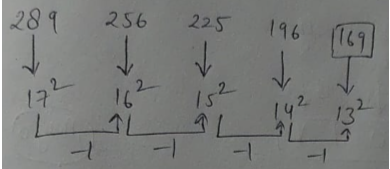 289 256 225 196 169
17² 16² 15² 14² 13²
-1 -1 -1 -1